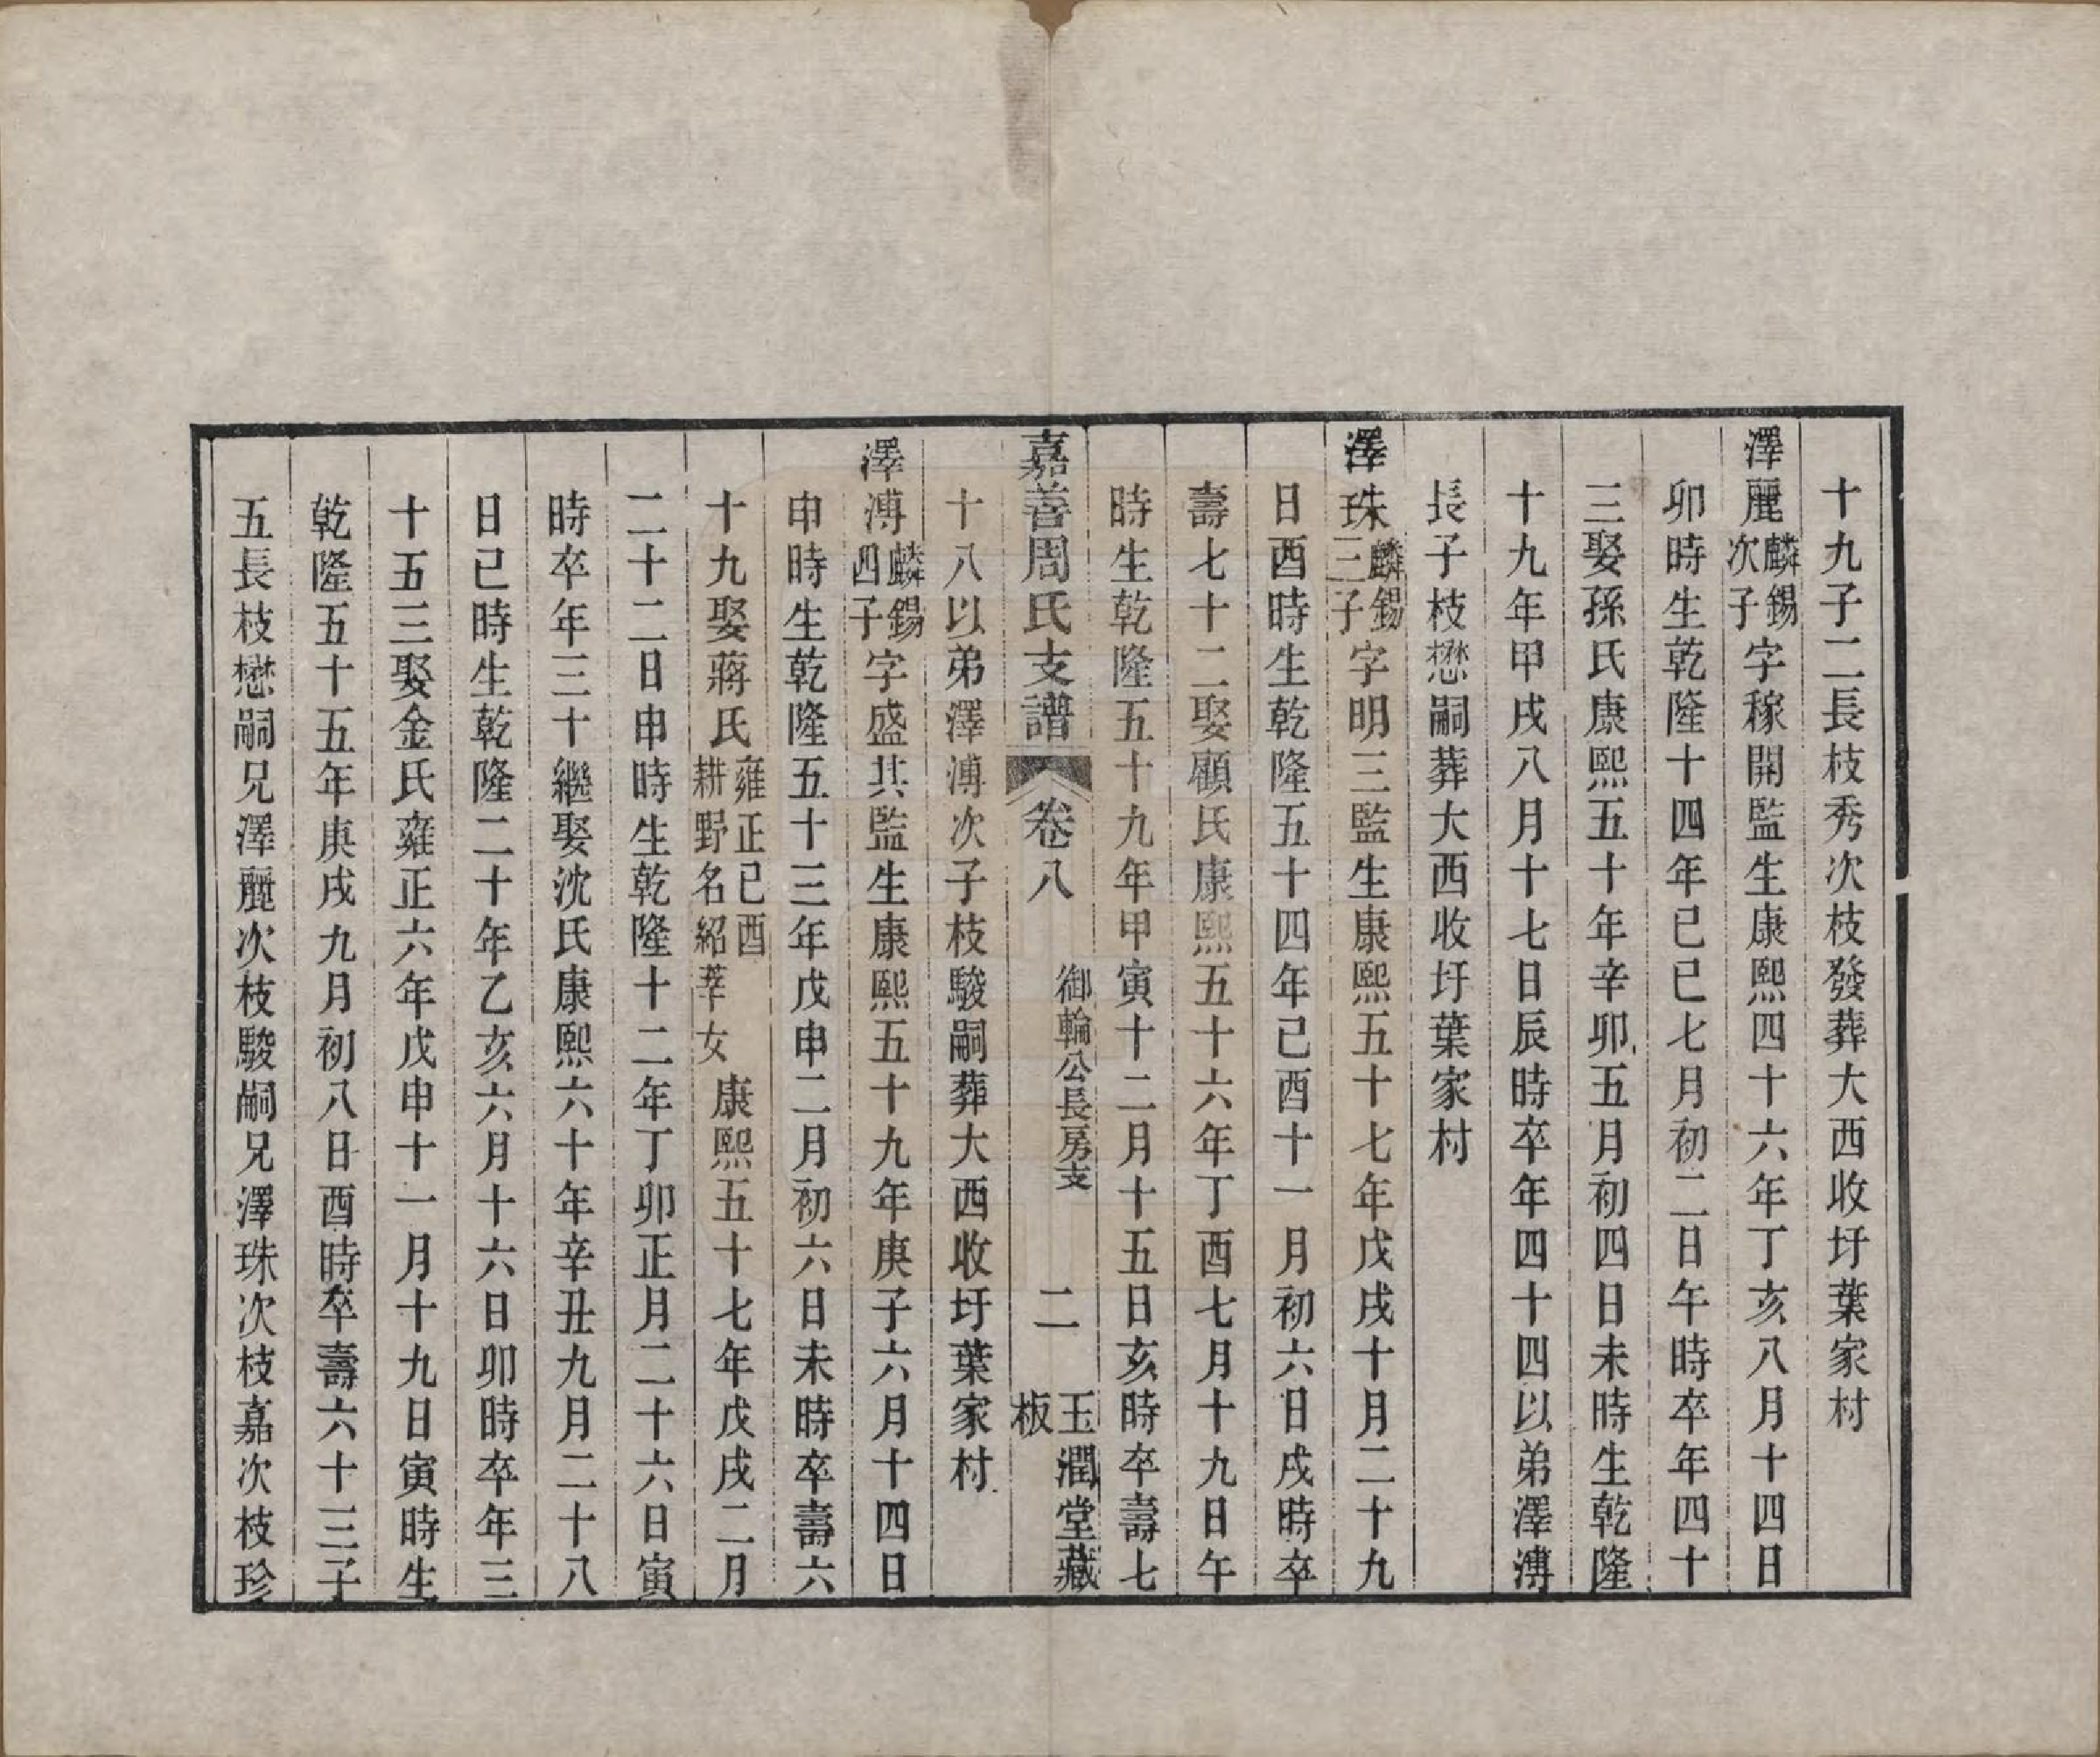 十九子二長枝秀次枝發葬大西收圩葉家村
澤麗麟錫次子字稼開監生康熙四十六年丁亥八月十四日
卯時生乾隆十四年己巳七月初二日午時卒年四十
三娶孫氏康熙五十年辛卯五月初四日未時生乾隆
十九年甲戌八月十七日辰時卒年四十四以弟澤溥
長子枝懋嗣葬大西收圩葉家村
澤珠麟錫三子字明三監生康熙五十七年戊戌十月二十九
日酉時生乾隆五十四年己酉十一月初六日戌時卒
壽七十二娶顧氏康熙五十六年丁酉七月十九日午
時生乾隆五十九年甲寅十二月十五日亥時卒壽七
嘉善周氏支譜 卷八 御輪公長房支 二 玉潤堂藏板
十八以弟澤溥次子枝駿嗣葬大西收圩葉家村
澤溥麟錫四子字盛其監生康熙五十九年庚子六月十四日
申時生乾隆五十三年戊申二月初六日未時卒壽六
十九娶蔣氏雍正己酉耕野名紹莘女康熙五十七年戊戌二月
二十二日申時生乾隆十二年丁卯正月二十六日寅
時卒年三十繼娶沈氏康熙六十年辛丑九月二十八
日巳時生乾隆二十年乙亥六月十六日卯時卒年三
十五三娶金氏雍正六年戊申十一月十九日寅時生
乾隆五十五年庚戌九月初八日酉時卒壽六十三子
五長枝懋嗣兄澤麗次枝駿嗣兄澤珠次枝嘉次枝珍